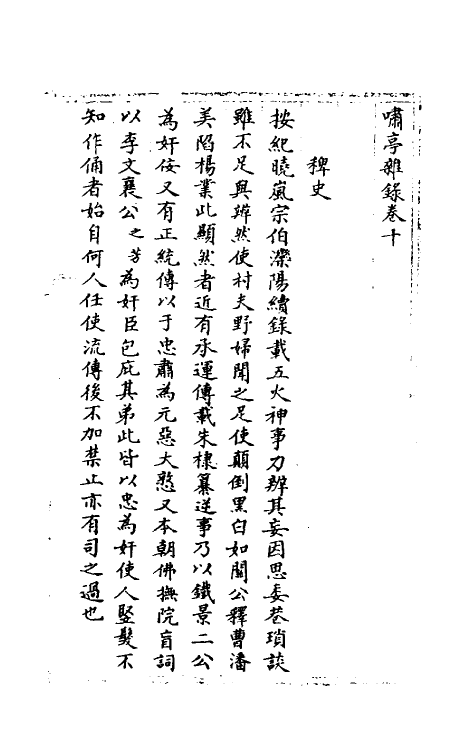 嘯亭雜錄卷十
稗史
按紀曉嵐宗伯灤陽續錄載五火神事力辨其妄因思委巷瑣談
雖不足與辨然使村夫野婦聞之足使顛倒黑白如關公釋曹潘
美陷楊業此顯然者近有承運傳載朱棣篡逆事乃以鐵景二公
為奸佞又有正統傳以于忠肅為元惡大憝又本朝佛撫院盲詞
以李文襄公之芳為奸臣包庇其弟此皆以忠為奸使人豎髮不
知作俑者始自何人任使流傳後不加禁止亦有司之過也